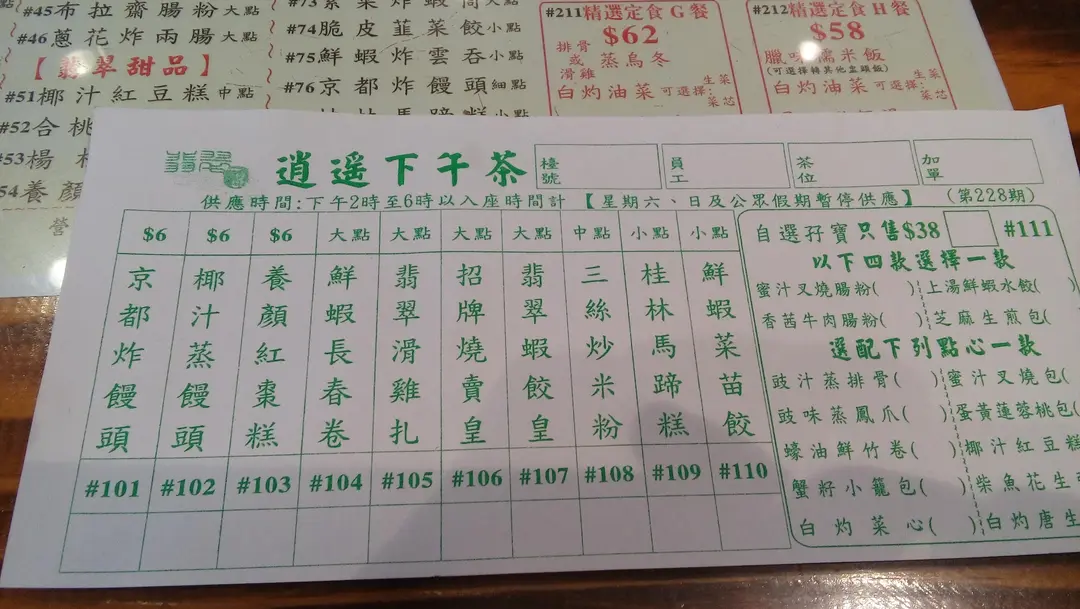 #45布拉齋腸粉大點
#46蔥花炸兩腸大點
【翡翠甜品】
#51椰汁紅豆糕中點
#52合桃
#53楊
54養顏
營
#74脆皮韮菜餃小點
#75鮮蝦炸雲吞小點
#76京都炸饅頭細點
#211精選定食G餐
$62
排骨或滑雞 蒸烏冬
白灼油菜 可選擇:生菜 菜芯
#212精選定食H餐
$58
臘味糯米飯
(可選擇轉其他盅頭飯)
白灼油菜 可選擇:生菜 菜芯
翡翠 逍遥下午茶
檯號 員工 茶位 加單
供應時間:下午2時至6時以入座時間計【星期六、日及公眾假期暫停供應】(第228期)
$6 $6 $6 大點 大點 大點 大點 中點 小點 小點
京都炸饅頭
椰汁蒸饅頭
養顏紅棗糕
鮮蝦長春卷
翡翠滑雞扎
招牌燒賣皇
翡翠蝦餃皇
三絲炒米粉
桂林馬蹄糕
鮮蝦菜苗餃
#101 #102 #103 #104 #105 #106 #107 #108 #109 #110
自選孖寶只售$38 #111
以下四款選擇一款
蜜汁叉燒腸粉( ) 上湯鮮蝦水餃(
香茜牛肉腸粉( ) 芝麻生煎包(
選配下列點心一款
豉汁蒸排骨( ) 蜜汁叉燒包(
豉味蒸鳳爪( ) 蛋黃蓮蓉桃包(
蠔油鮮竹卷( ) 椰汁紅豆糕
蟹籽小籠包( ) 柴魚花生
白灼菜心( ) 白灼唐生